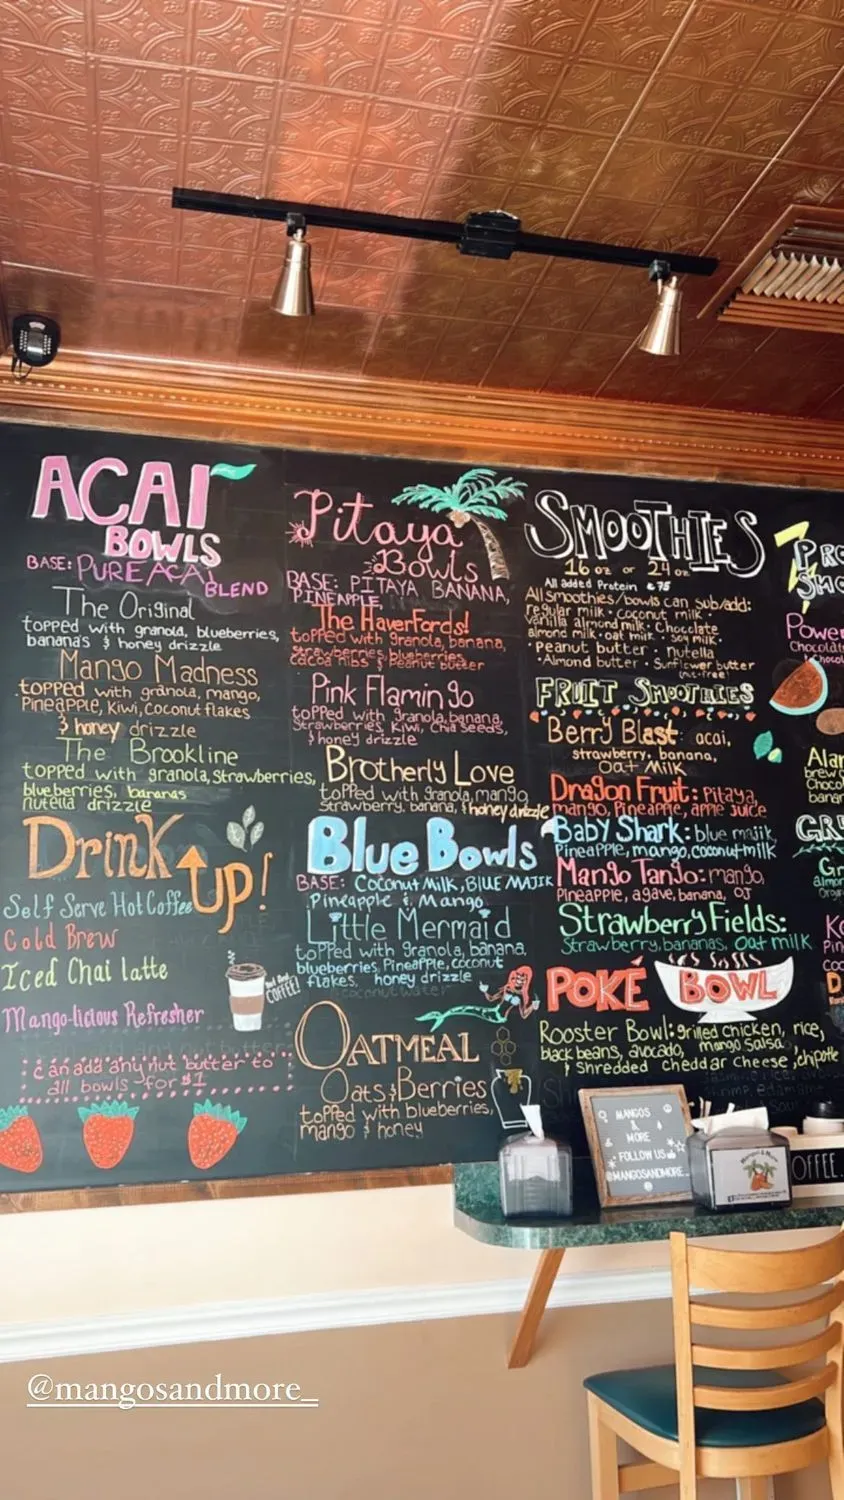 ACAI
BOWLS
BASE: PURE ACAI
BLEND
The Original
topped with granola, blueberries,
banana's & honey drizzle
Mango Madness
topped with granola, mango,
Pineapple, Kiwi, Coconut flakes
& honey drizzle
The Brookline
topped with granola, strawberries,
blueberries, bananas
nutella drizzle
Drink
UP!
Self Serve Hot Coffee
Cold Brew
Iced Chai latte
Mango-licious Refresher
COFFEE!
can add any nut butter to
all bowls for $1
Pitaya
Bowls
BASE: PITAYA, BANANA,
PINEAPPLE
The Haverfords!
topped with granola, banana,
strawberries, blueberries,
cacoa nibs & Peanut butter
Pink Flamingo
topped with granola, banana,
Strawberries, Kiwi, Chia Seeds,
& honey drizzle
Brotherly Love
topped with granola, mango,
Strawberry, banana, & honey drizzle
Blue Bowls
BASE: Coconut Milk, BLUE MAJIK
Pineapple & Mango
Little Mermaid
topped with granola, banana,
blueberries, Pineapple, coconut
flakes, honey drizzle
OATMEAL
Oats & Berries
topped with blueberries,
mango & honey
SMOOTHIES
16 oz or 24 oz
All added Protein
All Smoothies/bowls can sub/add:
regular milk · coconut milk ·
vanilla almond milk · Chocolate
almond milk · oat milk · Soy milk ·
· Peanut butter · nutella
· Almond butter · Sunflower butter
(nut-free!)
FRUIT SMOOTHIES
Berry Blast: acai,
strawberry, banana,
oat milk
Dragon Fruit: Pitaya,
mango, Pineapple, apple juice
Baby Shark: blue majik,
Pineapple, mango, coconut milk
Mango Tango: mango,
Pineapple, agave, banana, OJ
Strawberry Fields:
Strawberry, bananas, Oat milk
POKÉ
BOWL
Rooster Bowl: grilled chicken, rice,
black beans, avocado, mango salsa
& Shredded cheddar cheese, chipotle
MANGOS
&
MORE
FOLLOW US
@MANGOSANDMORE_
Mangos & More
OFFEE
@mangosandmore_